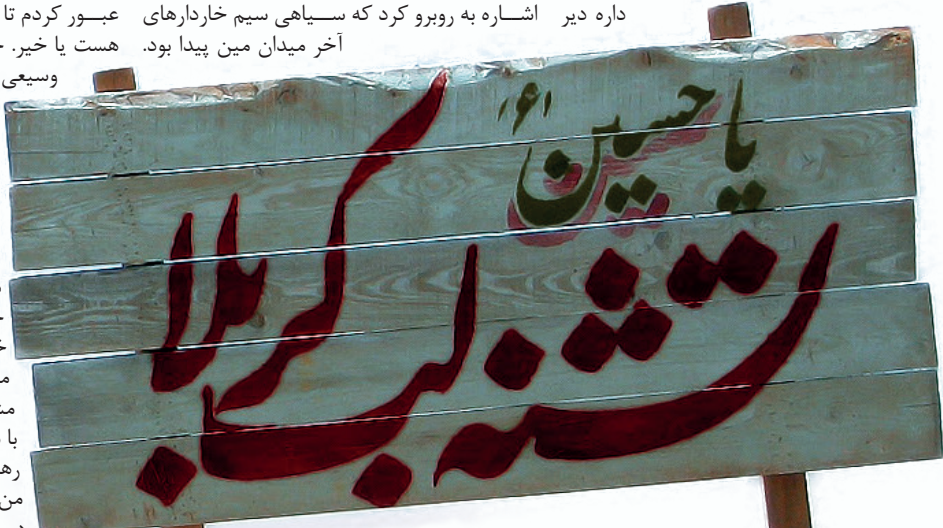 داره دیر
اشاره به روبرو کرد که سیاهی سیم خاردارهای
آخر میدان مین پیدا بود.
عبور کردم تا
هست یا خیر.
وسیعی
یا حسین (ع)
تشنه لب
کربلا
با
من